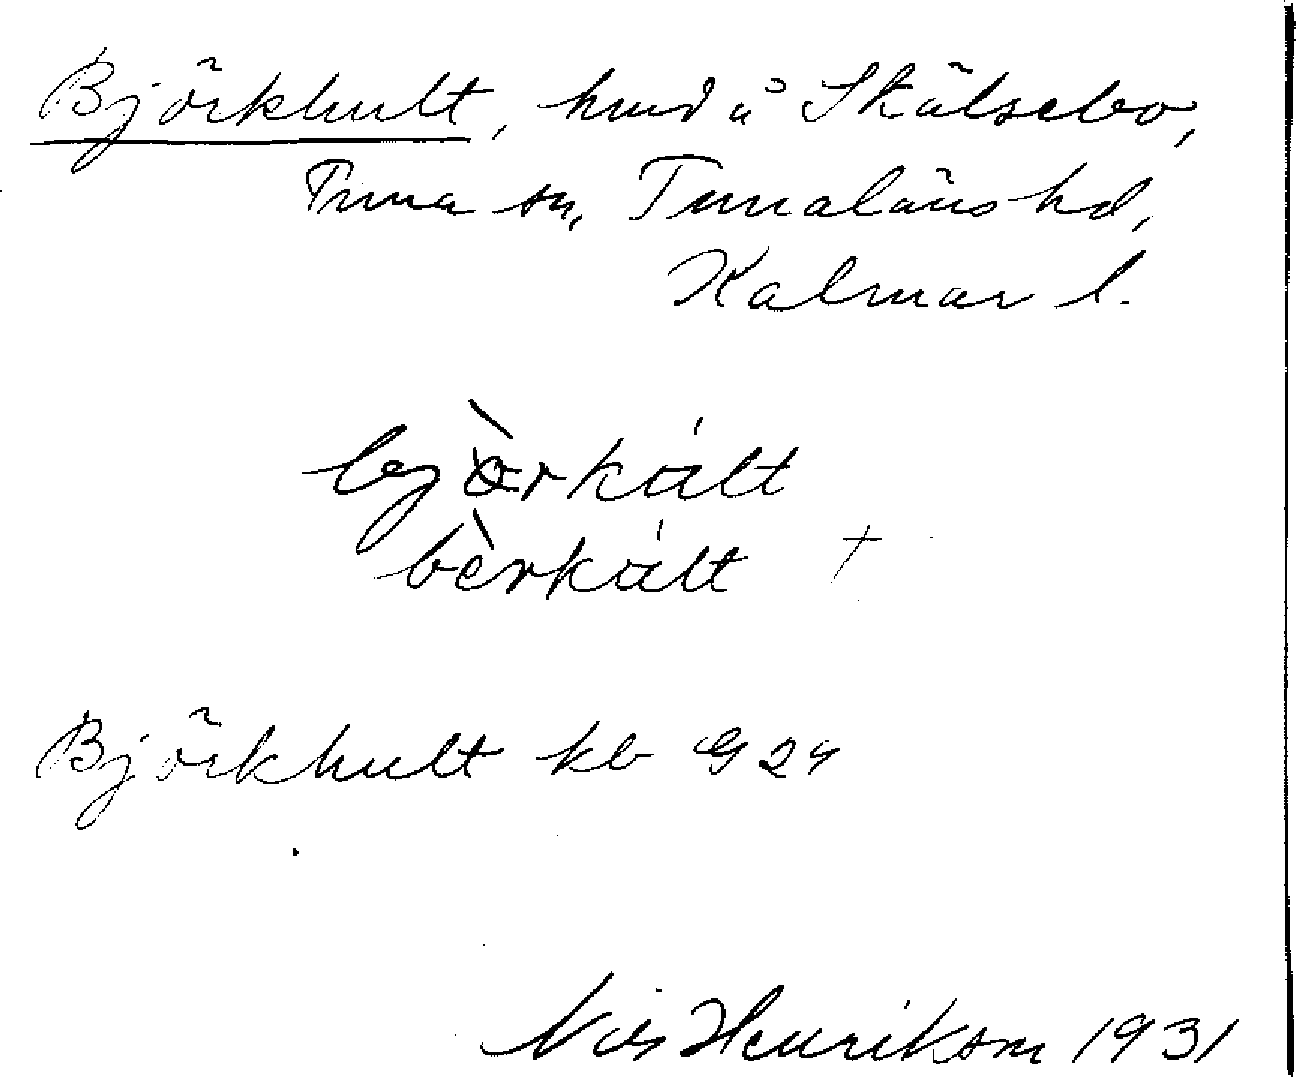 Björkhult, hmd å Skälsebo,
Tuna sn, Tunaläns hd,
Kalmar l.
bjòrkált
bèrkált +
Björkhult kb G 24
Nils Henrikson 1931